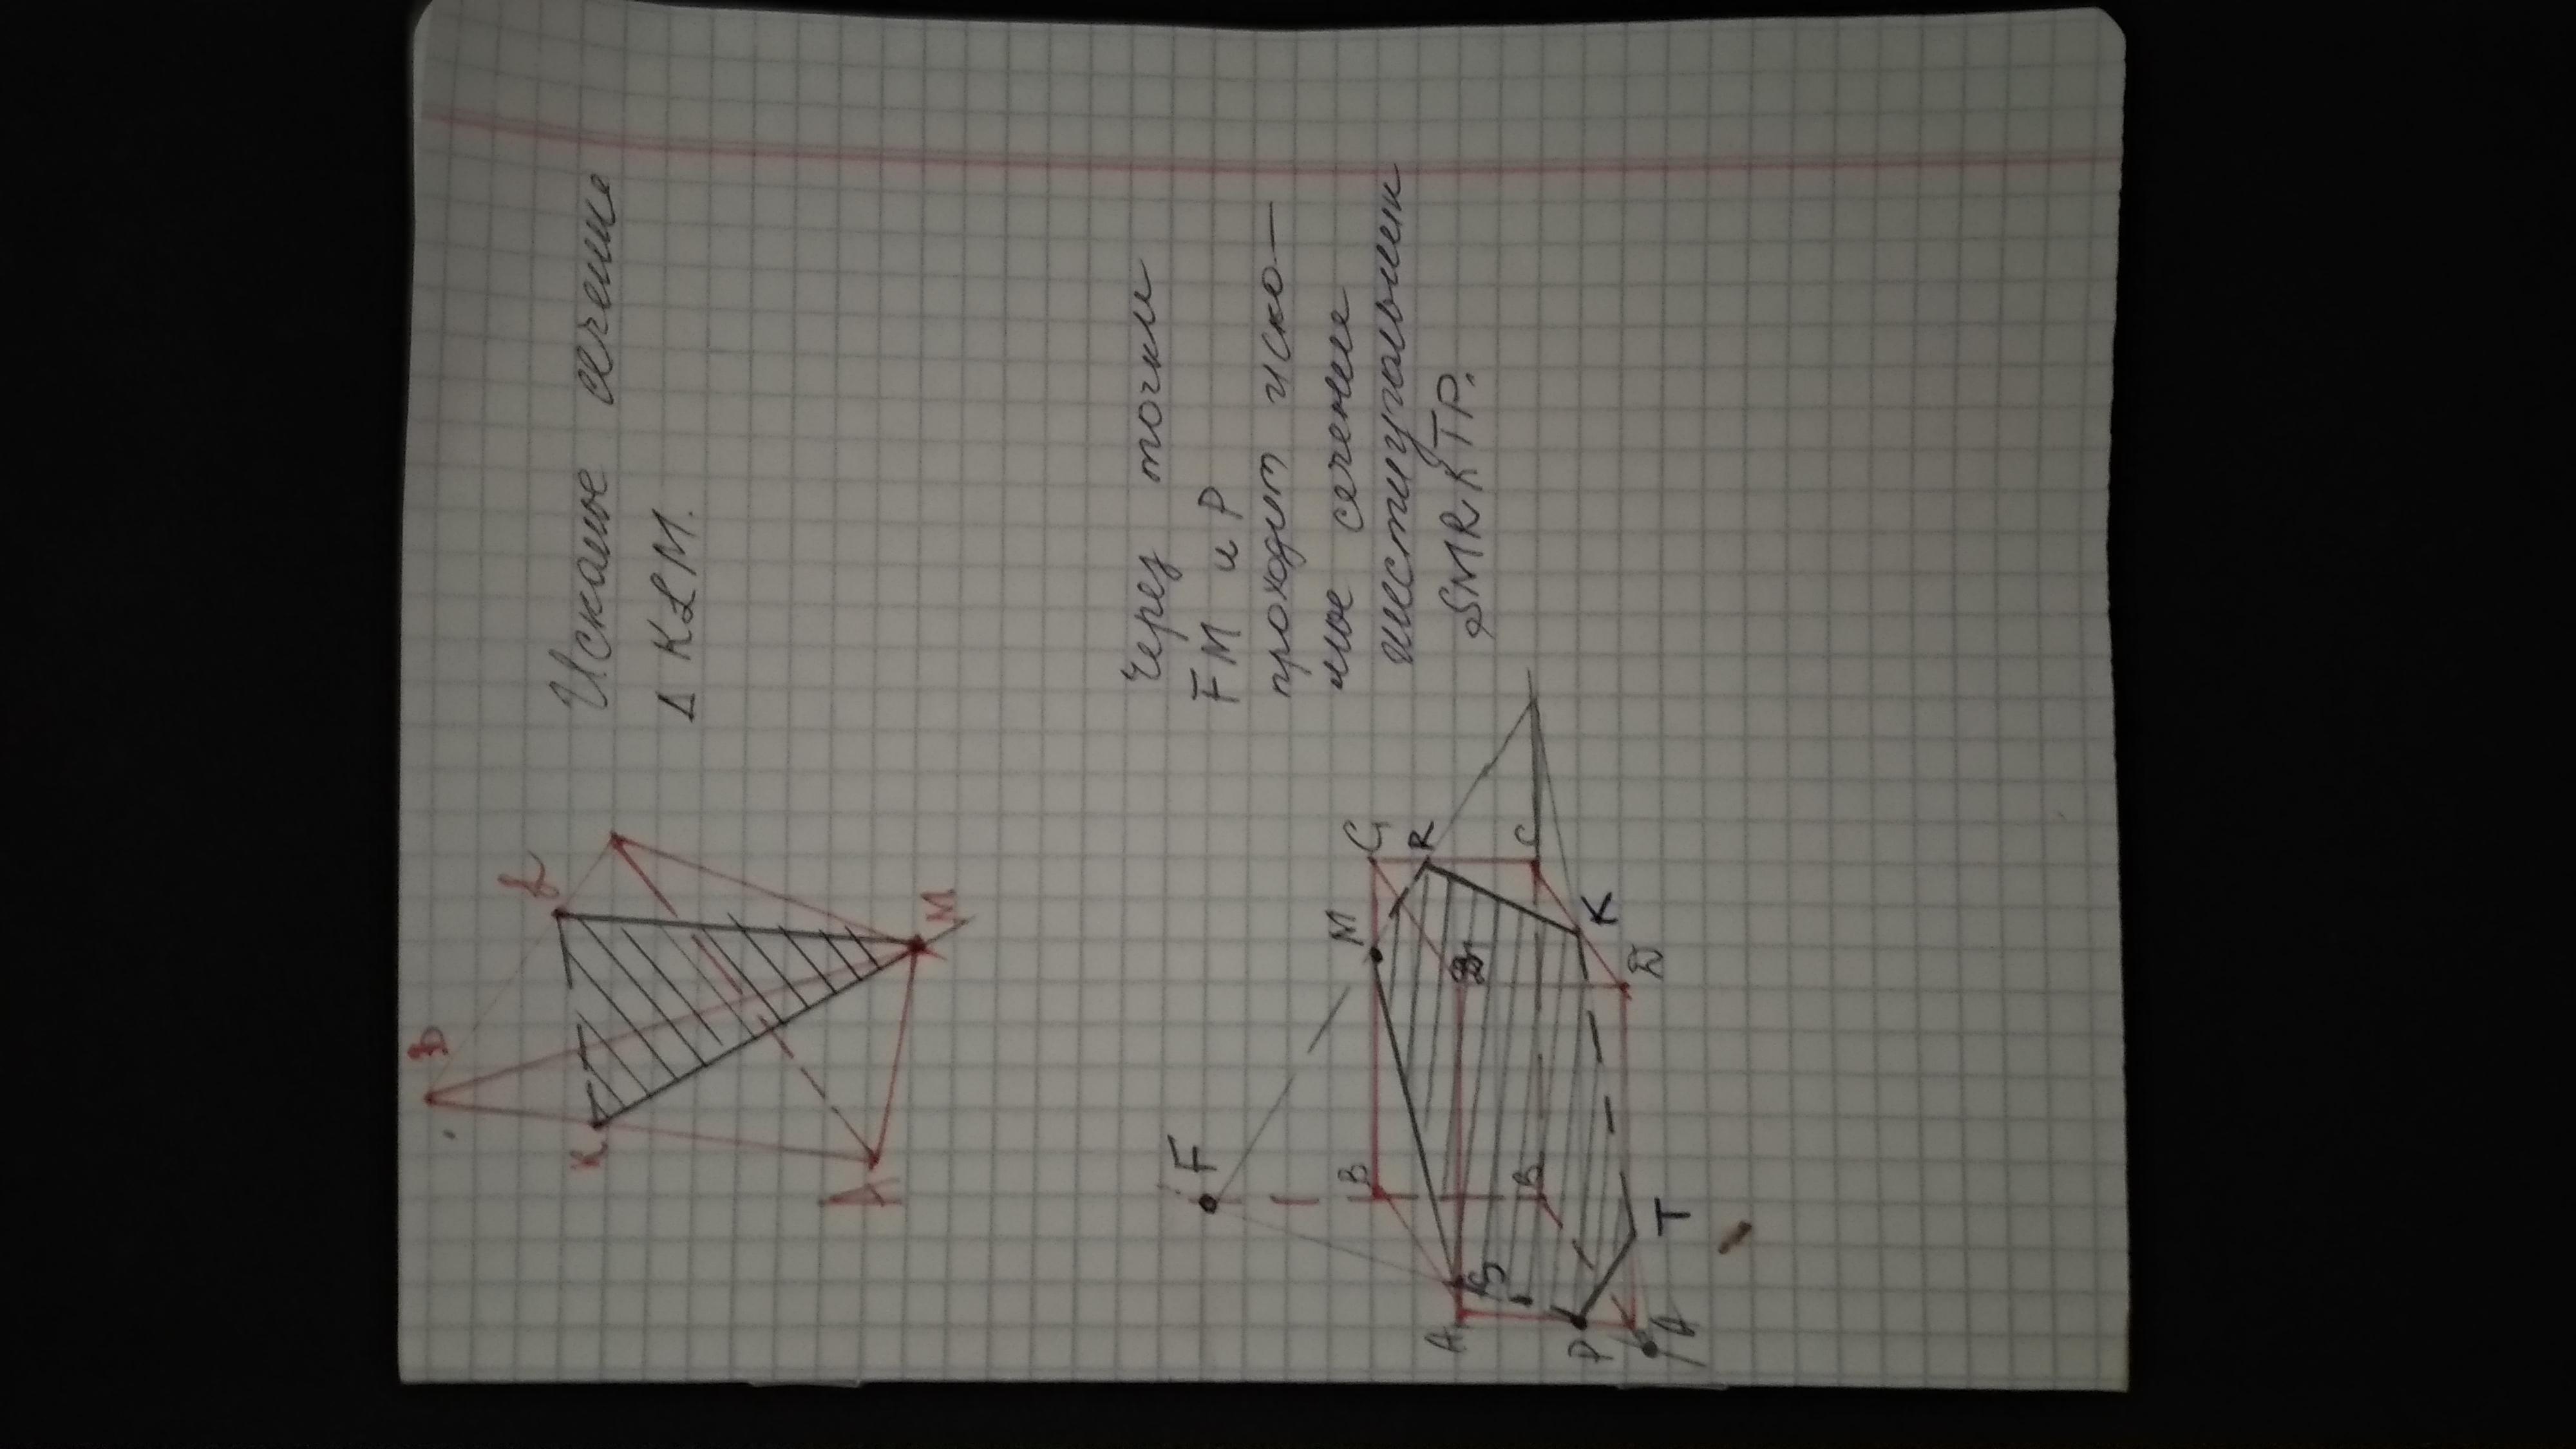 Искомое сечение
Δ KLM.
Через точки
F M и P
проходит иско-
мое сечение
шестиугольник
SMRKTP.
B
K
L
A
M
F
B
M
C₁
R
A₁
S
B
C
K
D
P
T
A